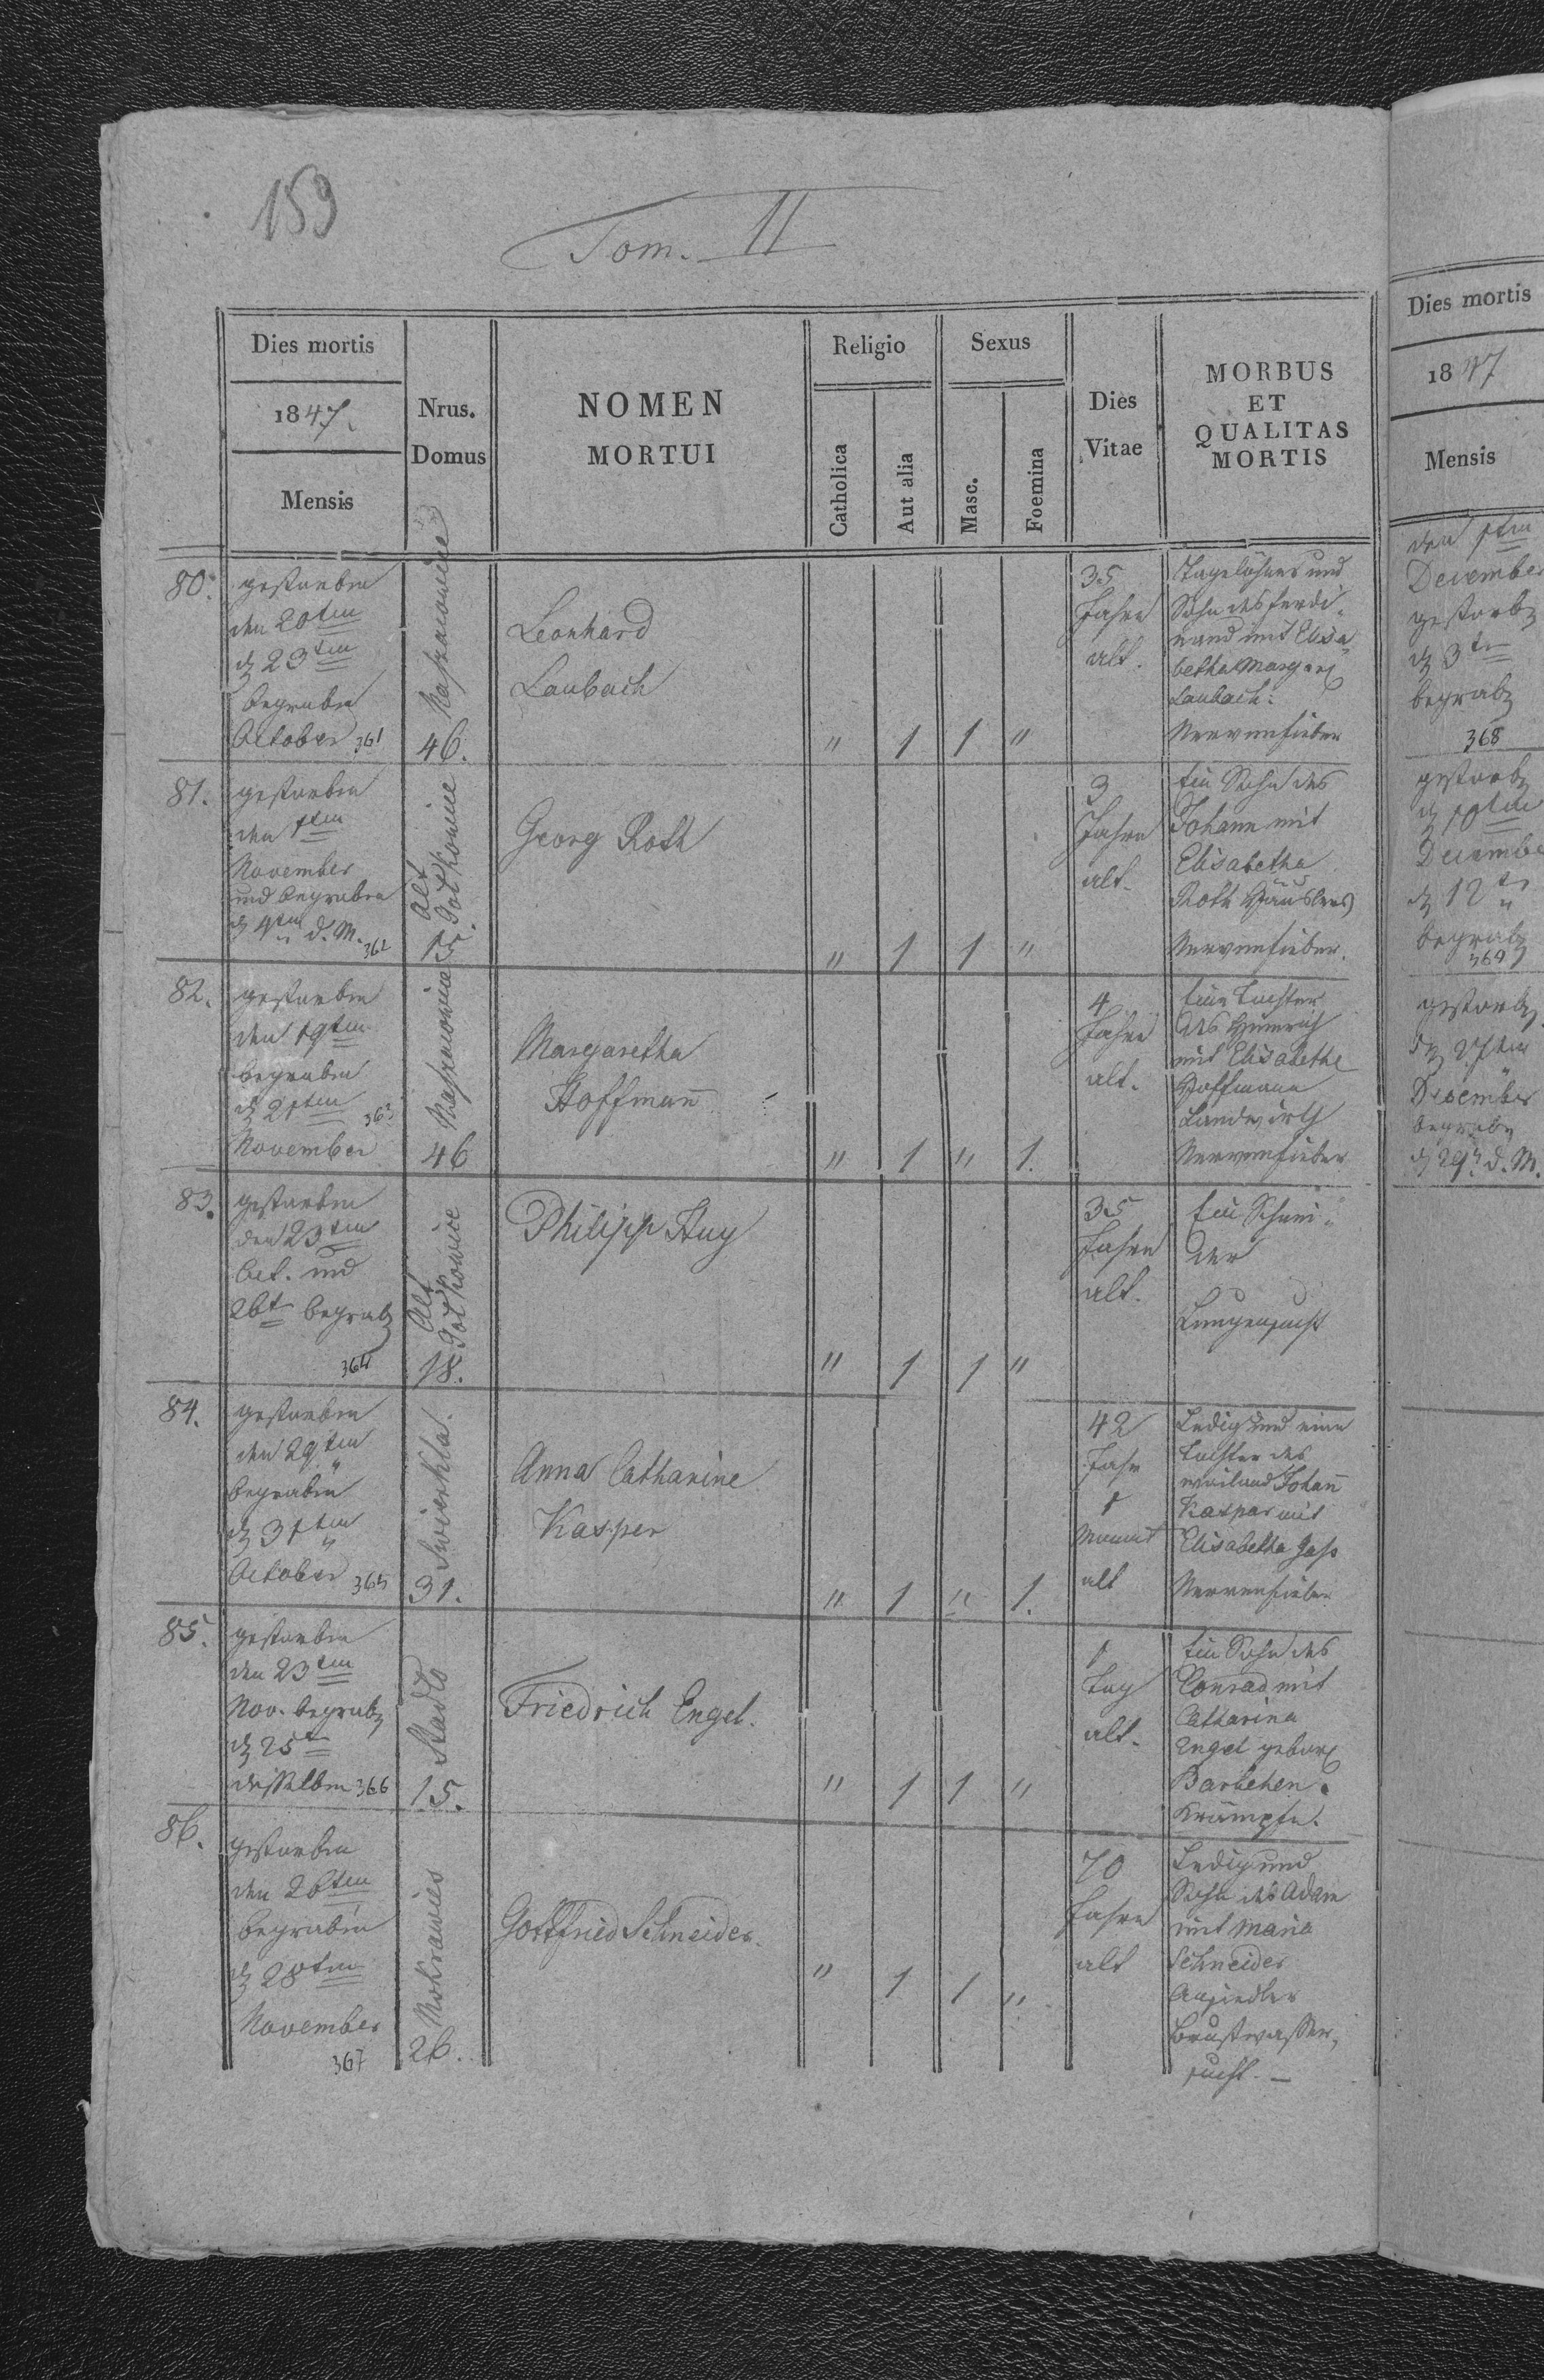 159
Tom. II
Dies mortis
1847.
Mensis
Nrus.
Domus
NOMEN
MORTUI
Religio
Catholica
Aut alia
Sexus
Masc.
Foemina
Dies
Vitae
MORBUS
ET
QUALITAS
MORTIS
80.
gestorben
den 20ten
d 23ten
begraben
October 361
46.
Leonhard
Laubach
" 1 1 "
35
Jahre
alt.
Tagelöhner und
Sohn des Ferdi-
nand mit Elisa-
betha Margar
Laubach.
Nervenfieber
81.
gestorben
den 1ten
November
und begraben
d 4ten d. M. 362
Alt
Gołkowice
15.
Georg Roth
" 1 1 "
3
Jahre
alt.
Ein Sohn des
Johann mit
Elisabetha
Roth Häuslers
Nervenfieber.
82.
gestorben
den 19ten
begraben
d 21ten 363
November
46
Margaretha
Hoffmann
" 1 " 1.
4
Jahre
alt.
Eine Tochter
des Heinrich
mit Elisabethe
Hoffmann
Landwirth
Nervenfieber
83.
gestorben
den 23ten
Oct. und
26t begrab
364
Alt
Gołkowice
18.
Philipp Huy
" 1 1 "
35
Jahre
alt.
Ein Schnei-
der
Lungensucht
84.
gestorben
den 29ten
begraben
d 31ten
October 365
Swierkla.
31.
Anna Catharine
Kasper
" 1 " 1.
42
Jahr
1
Monat
alt
Ledig und eine
Tochter des
weiland Johann
Kaspar mit
Elisabetha Jass
Nervenfieber
85.
gestorben
den 23ten
Nov. begrab
d 25t
desselben 366
Stadło
15.
Friedrich Engel.
" 1 1 "
1
Tag
alt.
Ein Sohn des
Conrad mit
Catharina
Engel gebor
Barbehen.
Krämpfe.
86.
gestorben
den 26ten
begraben
d 28ten
November
367
Mokrawies
26.
Gottfried Schneider.
" 1 1 "
70
Jahre
alt
Ledig und
Sohn des Adam
mit Maria
Schneider
Ansiedler
Brustwasser-
sucht. —
Dies mortis
1847
Mensis
den 1ten
December
gestorb
d 3te
begrab
368
gestorb
d 10ten
Decembe
d 12t
begrab
369
gestorb
d 27ten
December
begrab
d 29t d. M.